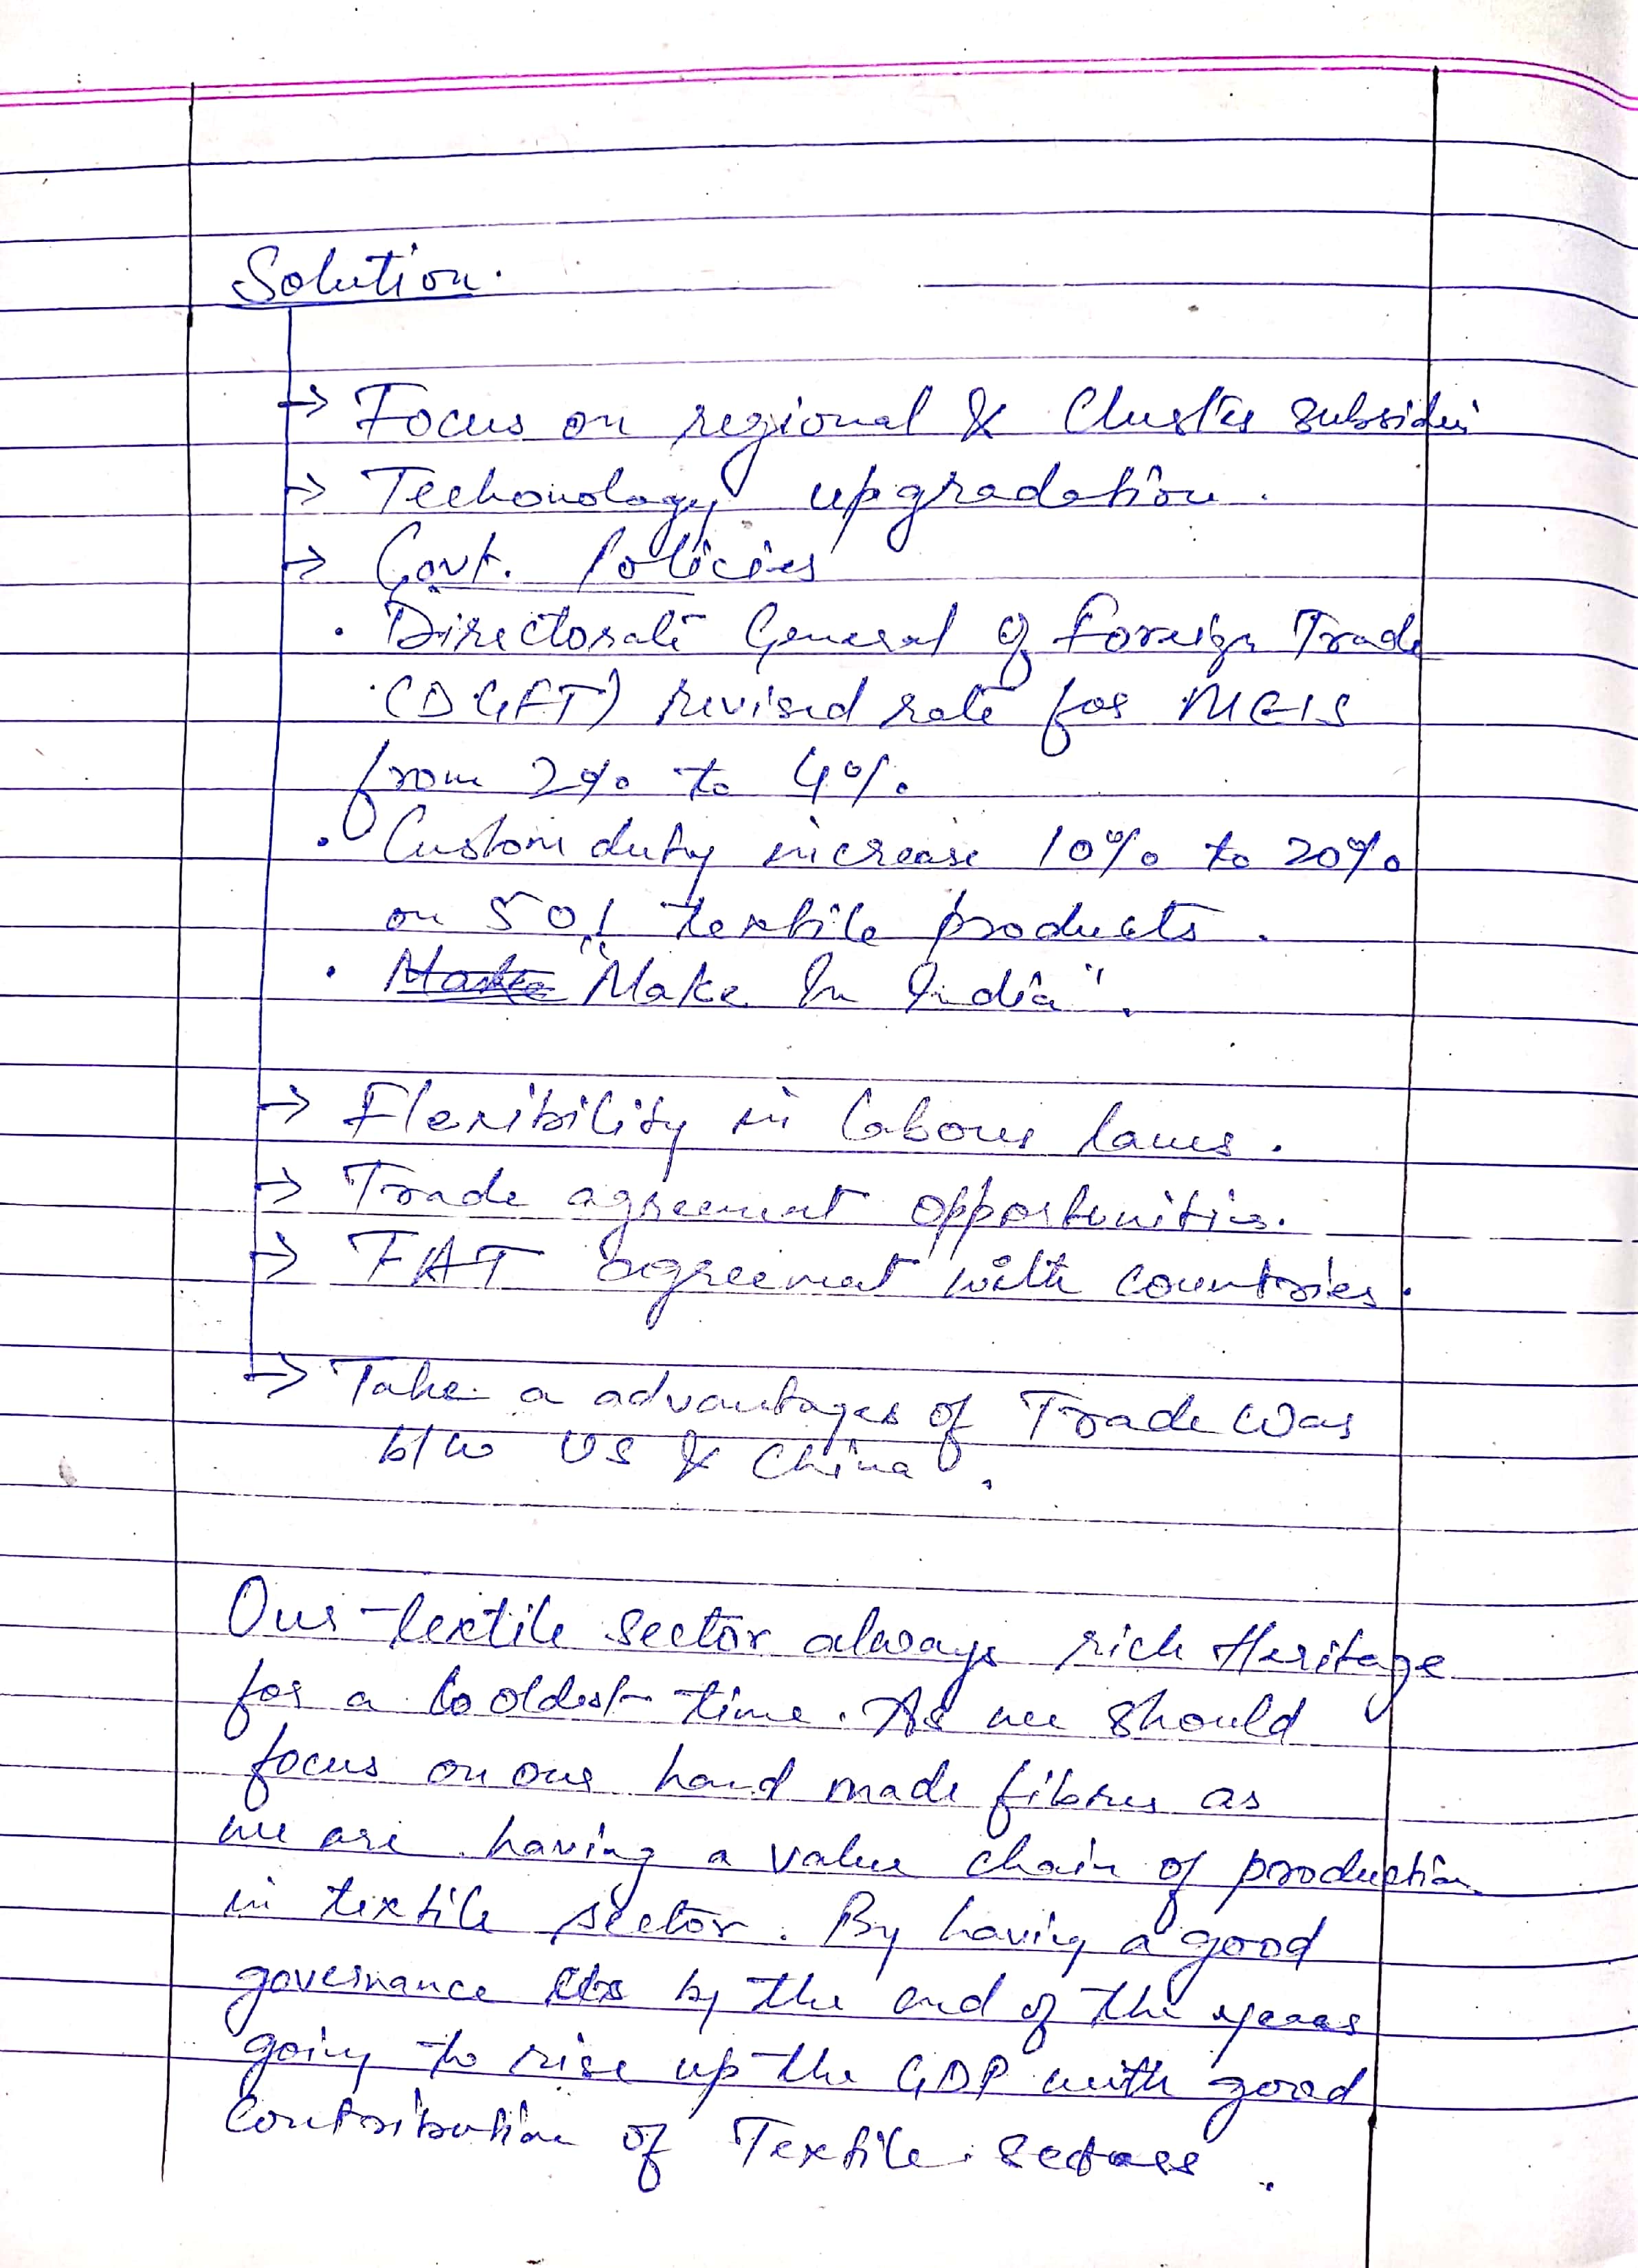 Solution.
→ Focus on regional & Cluster subsidies
→ Techonology upgradation.
→ Govt. Policies
. Directorate General of Foreign Trade
(DGFT) revised rate for MEIS
from 2% to 4%.
. Custom duty increase 10% to 20%
on 501 textile products.
. "Make In India".
→ Flexibility in labour laws.
→ Trade agreement opportunities.
→ FAT agreement with countries.
→ Take a advantages of Trade War
b/w US & China.
Our textile sector always rich Heritage
for a oldest time. As we should
focus on our hand made fibres as
we are having a value chain of production
in textile sector. By having a good
governance by the end of the years
going to rise up the GDP with good
contribution of Textile sectors.